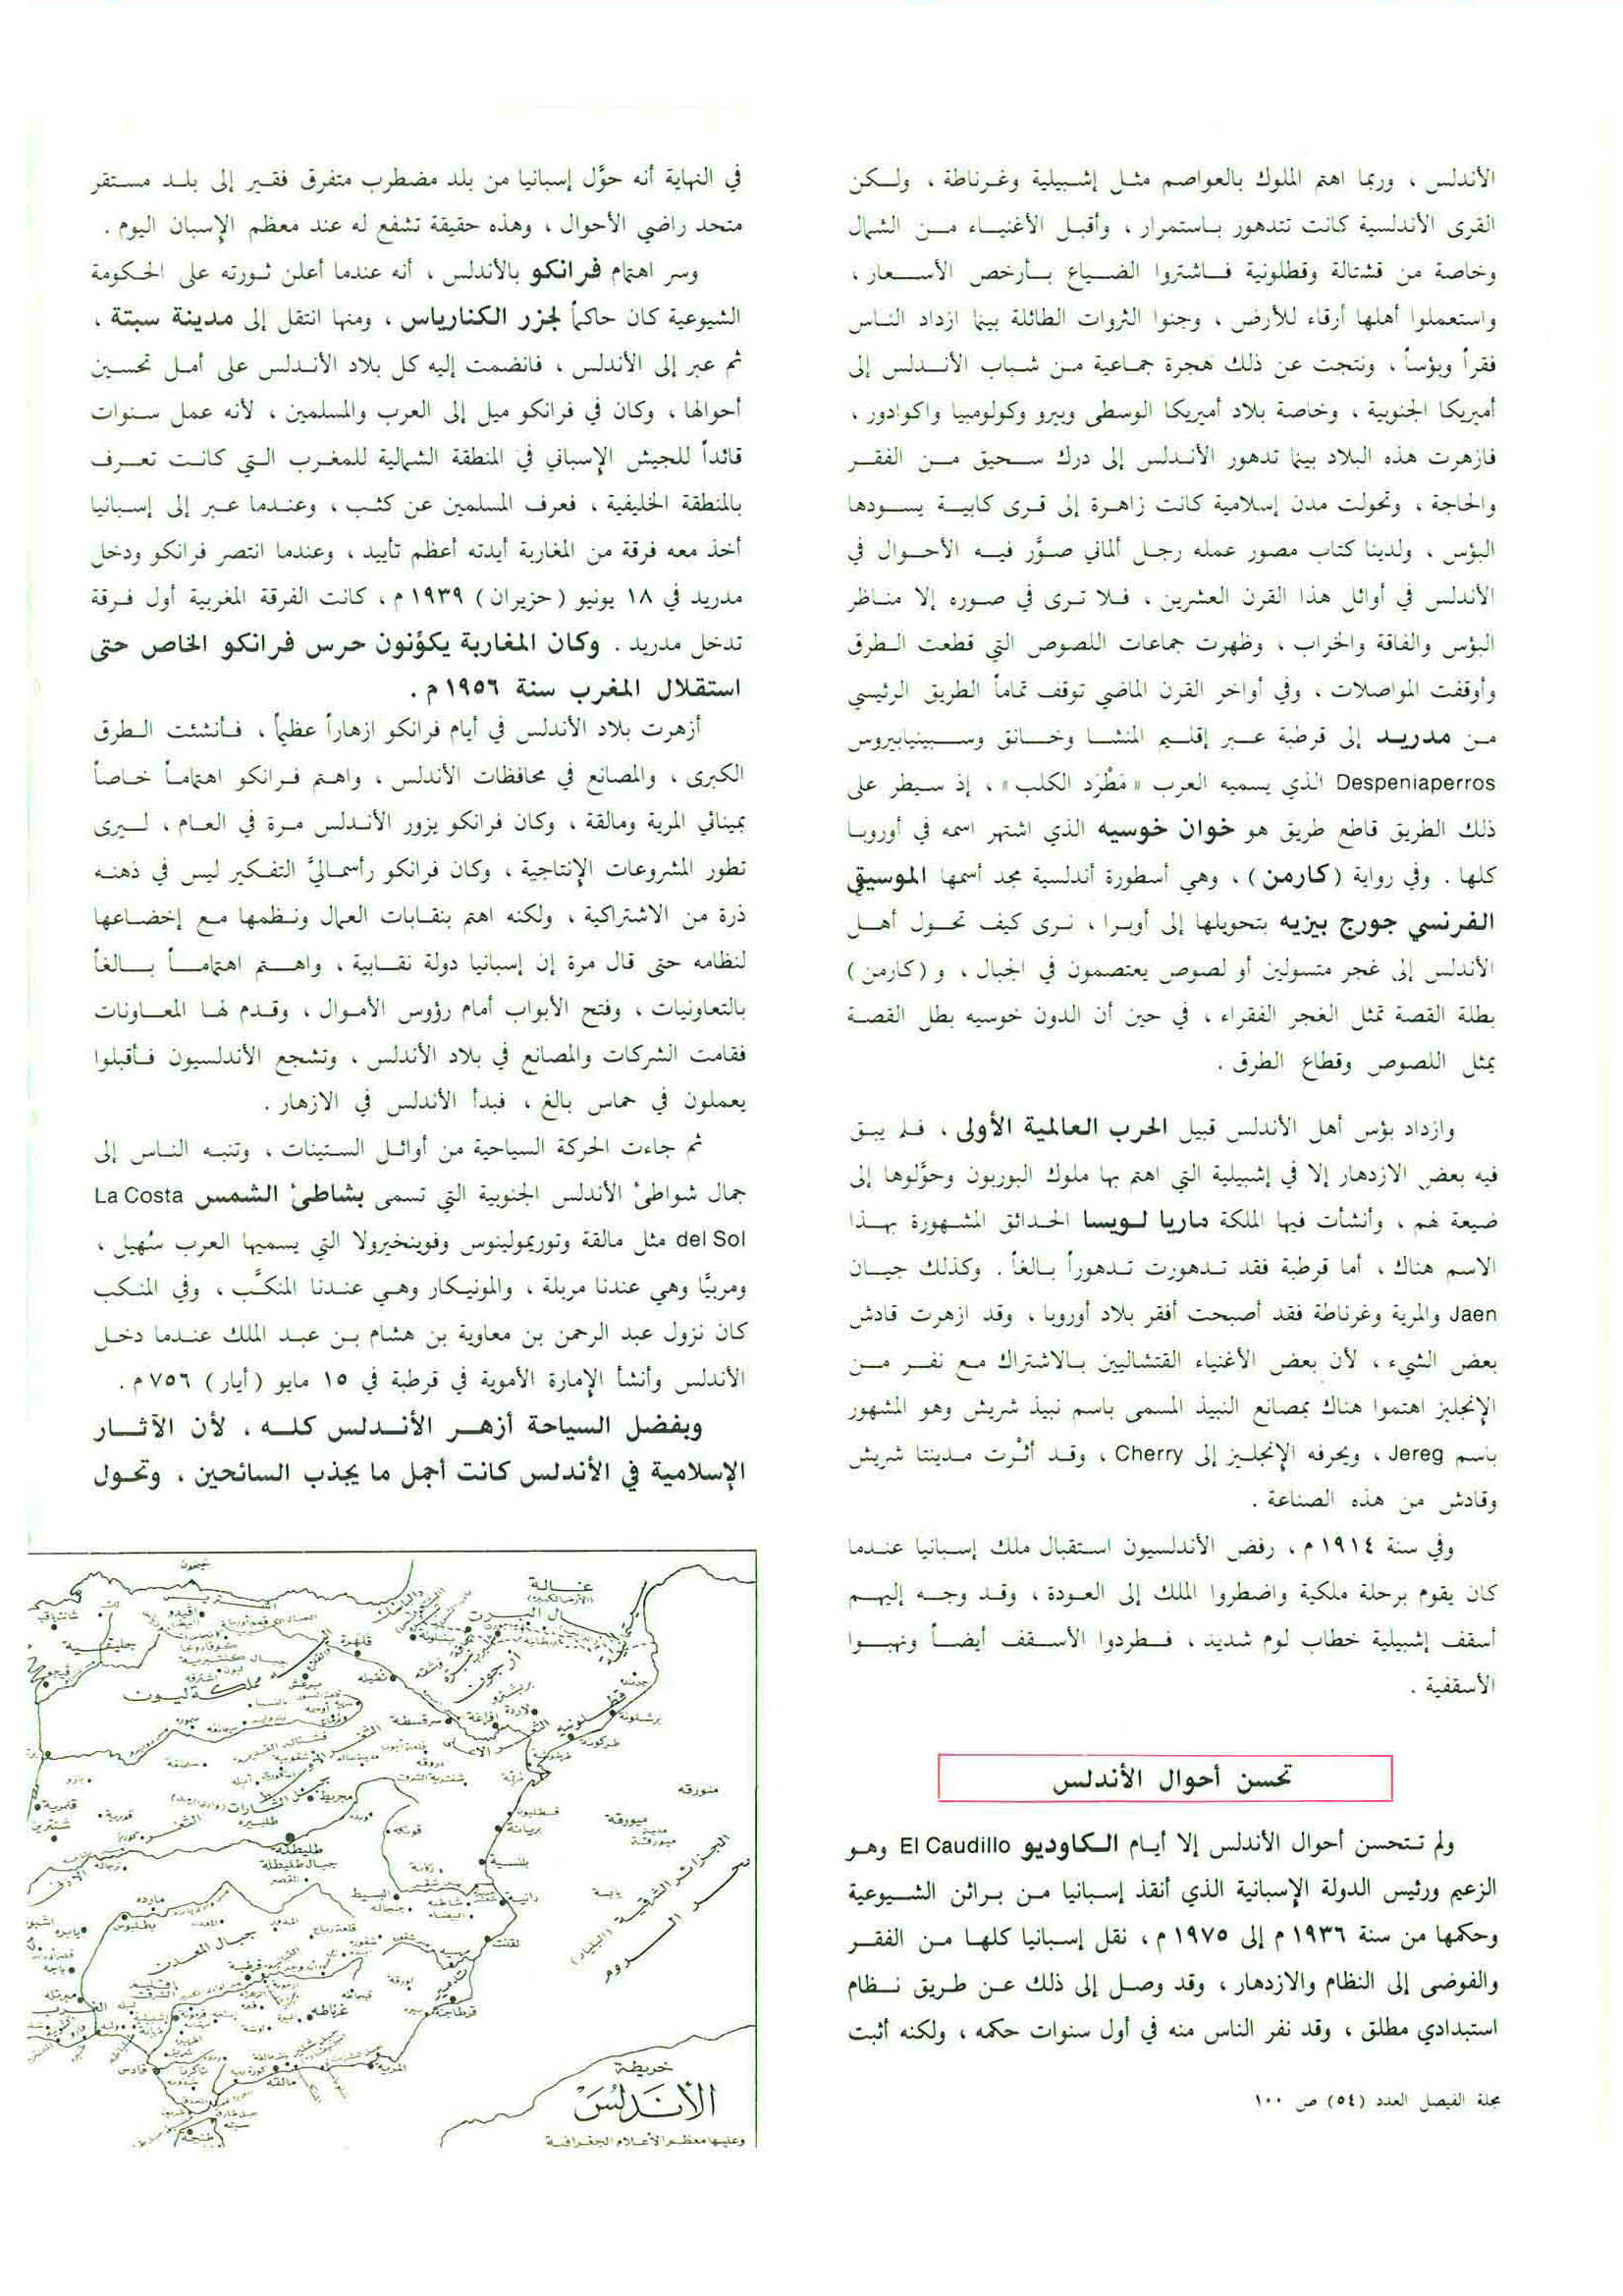 الأندلس ، وربما اهتم الملوك بالعواصم مثل إشبيلية وغرناطة ، ولكن
القرى الأندلسية كانت تتدهور باستمرار ، وأقبل الأغنياء من الشمال
وخاصة من قشتالة وقطلونية فاشتروا الضياع بأرخص الأسعار ،
واستعملوا أهلها أرقاء للأرض ، وجنوا الثروات الطائلة بينما ازداد الناس
فقراً وبؤساً ، ونتجت عن ذلك هجرة جماعية من شباب الأندلس إلى
أميريكا الجنوبية ، وخاصة بلاد أميريكا الوسطى وبيرو وكولومبيا واكوادور ،
فازهرت هذه البلاد بينما تدهور الأندلس إلى درك سحيق من الفقر
والحاجة ، وتحولت مدن إسلامية كانت زاهرة إلى قرى كابية يسودها
البؤس ، ولدينا كتاب مصور عمله رجل ألماني صوَّر فيه الأحوال في
الأندلس في أوائل هذا القرن العشرين ، فلا ترى في صوره إلا مناظر
البؤس والفاقة والخراب ، وظهرت جماعات اللصوص التي قطعت الطرق
وأوقفت المواصلات ، وفي أواخر القرن الماضي توقف تماماً الطريق الرئيسي
من مدريد إلى قرطبة عبر إقليم المنشا وخانق وسبينيابيروس
Despeniaperros الذي يسميه العرب «مَطْرَد الكلب» ، إذ سيطر على
ذلك الطريق قاطع طريق هو خوان خوسيه الذي اشتهر اسمه في أوروبا
كلها . وفي رواية (كارمن) ، وهي أسطورة أندلسية مجد أسمها الموسيقي
الفرنسي جورج بيزيه بتحويلها إلى أوبرا ، نرى كيف تحول أهل
الأندلس إلى غجر متسولين أو لصوص يعتصمون في الجبال ، و (كارمن)
بطلة القصة تمثل الغجر الفقراء ، في حين أن الدون خوسيه بطل القصة
يمثل اللصوص وقطاع الطرق .
وازداد بؤس أهل الأندلس قبيل الحرب العالمية الأولى ، فلم يبق
فيه بعض الازدهار إلا في إشبيلية التي اهتم بها ملوك البوربون وحوَّلوها إلى
ضيعة لهم ، وأنشأت فيها الملكة ماريا لويسا الحدائق المشهورة بهذا
الاسم هناك ، أما قرطبة فقد تدهورت تدهوراً بالغاً . وكذلك جيان
Jaen والمرية وغرناطة فقد أصبحت أفقر بلاد أوروبا ، وقد ازهرت قادش
بعض الشيء ، لأن بعض الأغنياء القتشاليين بالاشتراك مع نفر من
الإنجليز اهتموا هناك بمصانع النبيذ المسمى باسم نبيذ شريش وهو المشهور
باسم Jereg ، ويحرفه الإنجليز إلى Cherry ، وقد أثْرت مدينتا شريش
وقادش من هذه الصناعة .
وفي سنة ١٩١٤ م ، رفض الأندلسيون استقبال ملك إسبانيا عندما
كان يقوم برحلة ملكية واضطروا الملك إلى العودة ، وقد وجه إليهم
أسقف إشبيلية خطاب لوم شديد ، فطردوا الأسقف أيضاً ونهبوا
الأسقفية .
تحسن أحوال الأندلس
ولم تتحسن أحوال الأندلس إلا أيام الكاوديو El Caudillo وهو
الزعيم ورئيس الدولة الإسبانية الذي أنقذ إسبانيا من براثن الشيوعية
وحكمها من سنة ١٩٣٦ م إلى ١٩٧٥ م ، نقل إسبانيا كلها من الفقر
والفوضى إلى النظام والازدهار ، وقد وصل إلى ذلك عن طريق نظام
استبدادي مطلق ، وقد نفر الناس منه في أول سنوات حكمه ، ولكنه أثبت
مجلة الفيصل العدد (٥٤) ص ١٠٠
في النهاية أنه حوَّل إسبانيا من بلد مضطرب متفرق فقير إلى بلد مستقر
متحد راضي الأحوال ، وهذه حقيقة تشفع له عند معظم الإسبان اليوم .
وسر اهتمام فرانكو بالأندلس ، أنه عندما أعلن ثورته على الحكومة
الشيوعية كان حاكماً لجزر الكنارياس ، ومنها انتقل إلى مدينة سبتة ،
ثم عبر إلى الأندلس ، فانضمت إليه كل بلاد الأندلس على أمل تحسين
أحوالها ، وكان في فرانكو ميل إلى العرب والمسلمين ، لأنه عمل سنوات
قائداً للجيش الإسباني في المنطقة الشمالية للمغرب التي كانت تعرف
بالمنطقة الخليفية ، فعرف المسلمين عن كثب ، وعندما عبر إلى إسبانيا
أخذ معه فرقة من المغاربة أيدته أعظم تأييد ، وعندما انتصر فرانكو ودخل
مدريد في ١٨ يونيو (حزيران) ١٩٣٩ م ، كانت الفرقة المغربية أول فرقة
تدخل مدريد . وكان المغاربة يكوِّنون حرس فرانكو الخاص حتى
استقلال المغرب سنة ١٩٥٦ م .
أزهرت بلاد الأندلس في أيام فرانكو ازهاراً عظيماً ، فأنشئت الطرق
الكبرى ، والمصانع في محافظات الأندلس ، واهتم فرانكو اهتماماً خاصاً
بمينائي المرية ومالقة ، وكان فرانكو يزور الأندلس مرة في العام ، ليرى
تطور المشروعات الإنتاجية ، وكان فرانكو رأسماليَّ التفكير ليس في ذهنه
ذرة من الاشتراكية ، ولكنه اهتم بنقابات العمال ونظمها مع إخضاعها
لنظامه حتى قال مرة إن إسبانيا دولة نقابية ، واهتم اهتماماً بالغاً
بالتعاونيات ، وفتح الأبواب أمام رؤوس الأموال ، وقدم لها المعاونات
فقامت الشركات والمصانع في بلاد الأندلس ، وتشجع الأندلسيون فأقبلوا
يعملون في حماس بالغ ، فبدأ الأندلس في الازهار .
ثم جاءت الحركة السياحية من أوائل الستينات ، وتنبه الناس إلى
جمال شواطئ الأندلس الجنوبية التي تسمى بشاطئ الشمس La Costa
del Sol مثل مالقة وتوريمولينوس وفوينخيرولا التي يسميها العرب سُهيل ،
ومربيَّا وهي عندنا مربلة ، والمونيكار وهي عندنا المنكَّب ، وفي المنكب
كان نزول عبد الرحمن بن معاوية بن هشام بن عبد الملك عندما دخل
الأندلس وأنشأ الإمارة الأموية في قرطبة في ١٥ مايو (أيار) ٧٥٦ م .
وبفضل السياحة أزهر الأندلس كله ، لأن الآثار
الإسلامية في الأندلس كانت أجمل ما يجذب السائحين ، وتحول
غالة
جليقية
مملكة ليون
قلهرة
سرقسطة
برشلونة
طركونة
منورقة
ميورقة
يابسة
طليطلة
جبال طليطلة
بلنسية
دانية
لقنت
قرطبة
غرناطة
مالقة
المرية
قادس
سبتة
طنجة
خريطة
الأندلس
وعليها معظم الأعلام الجغرافية